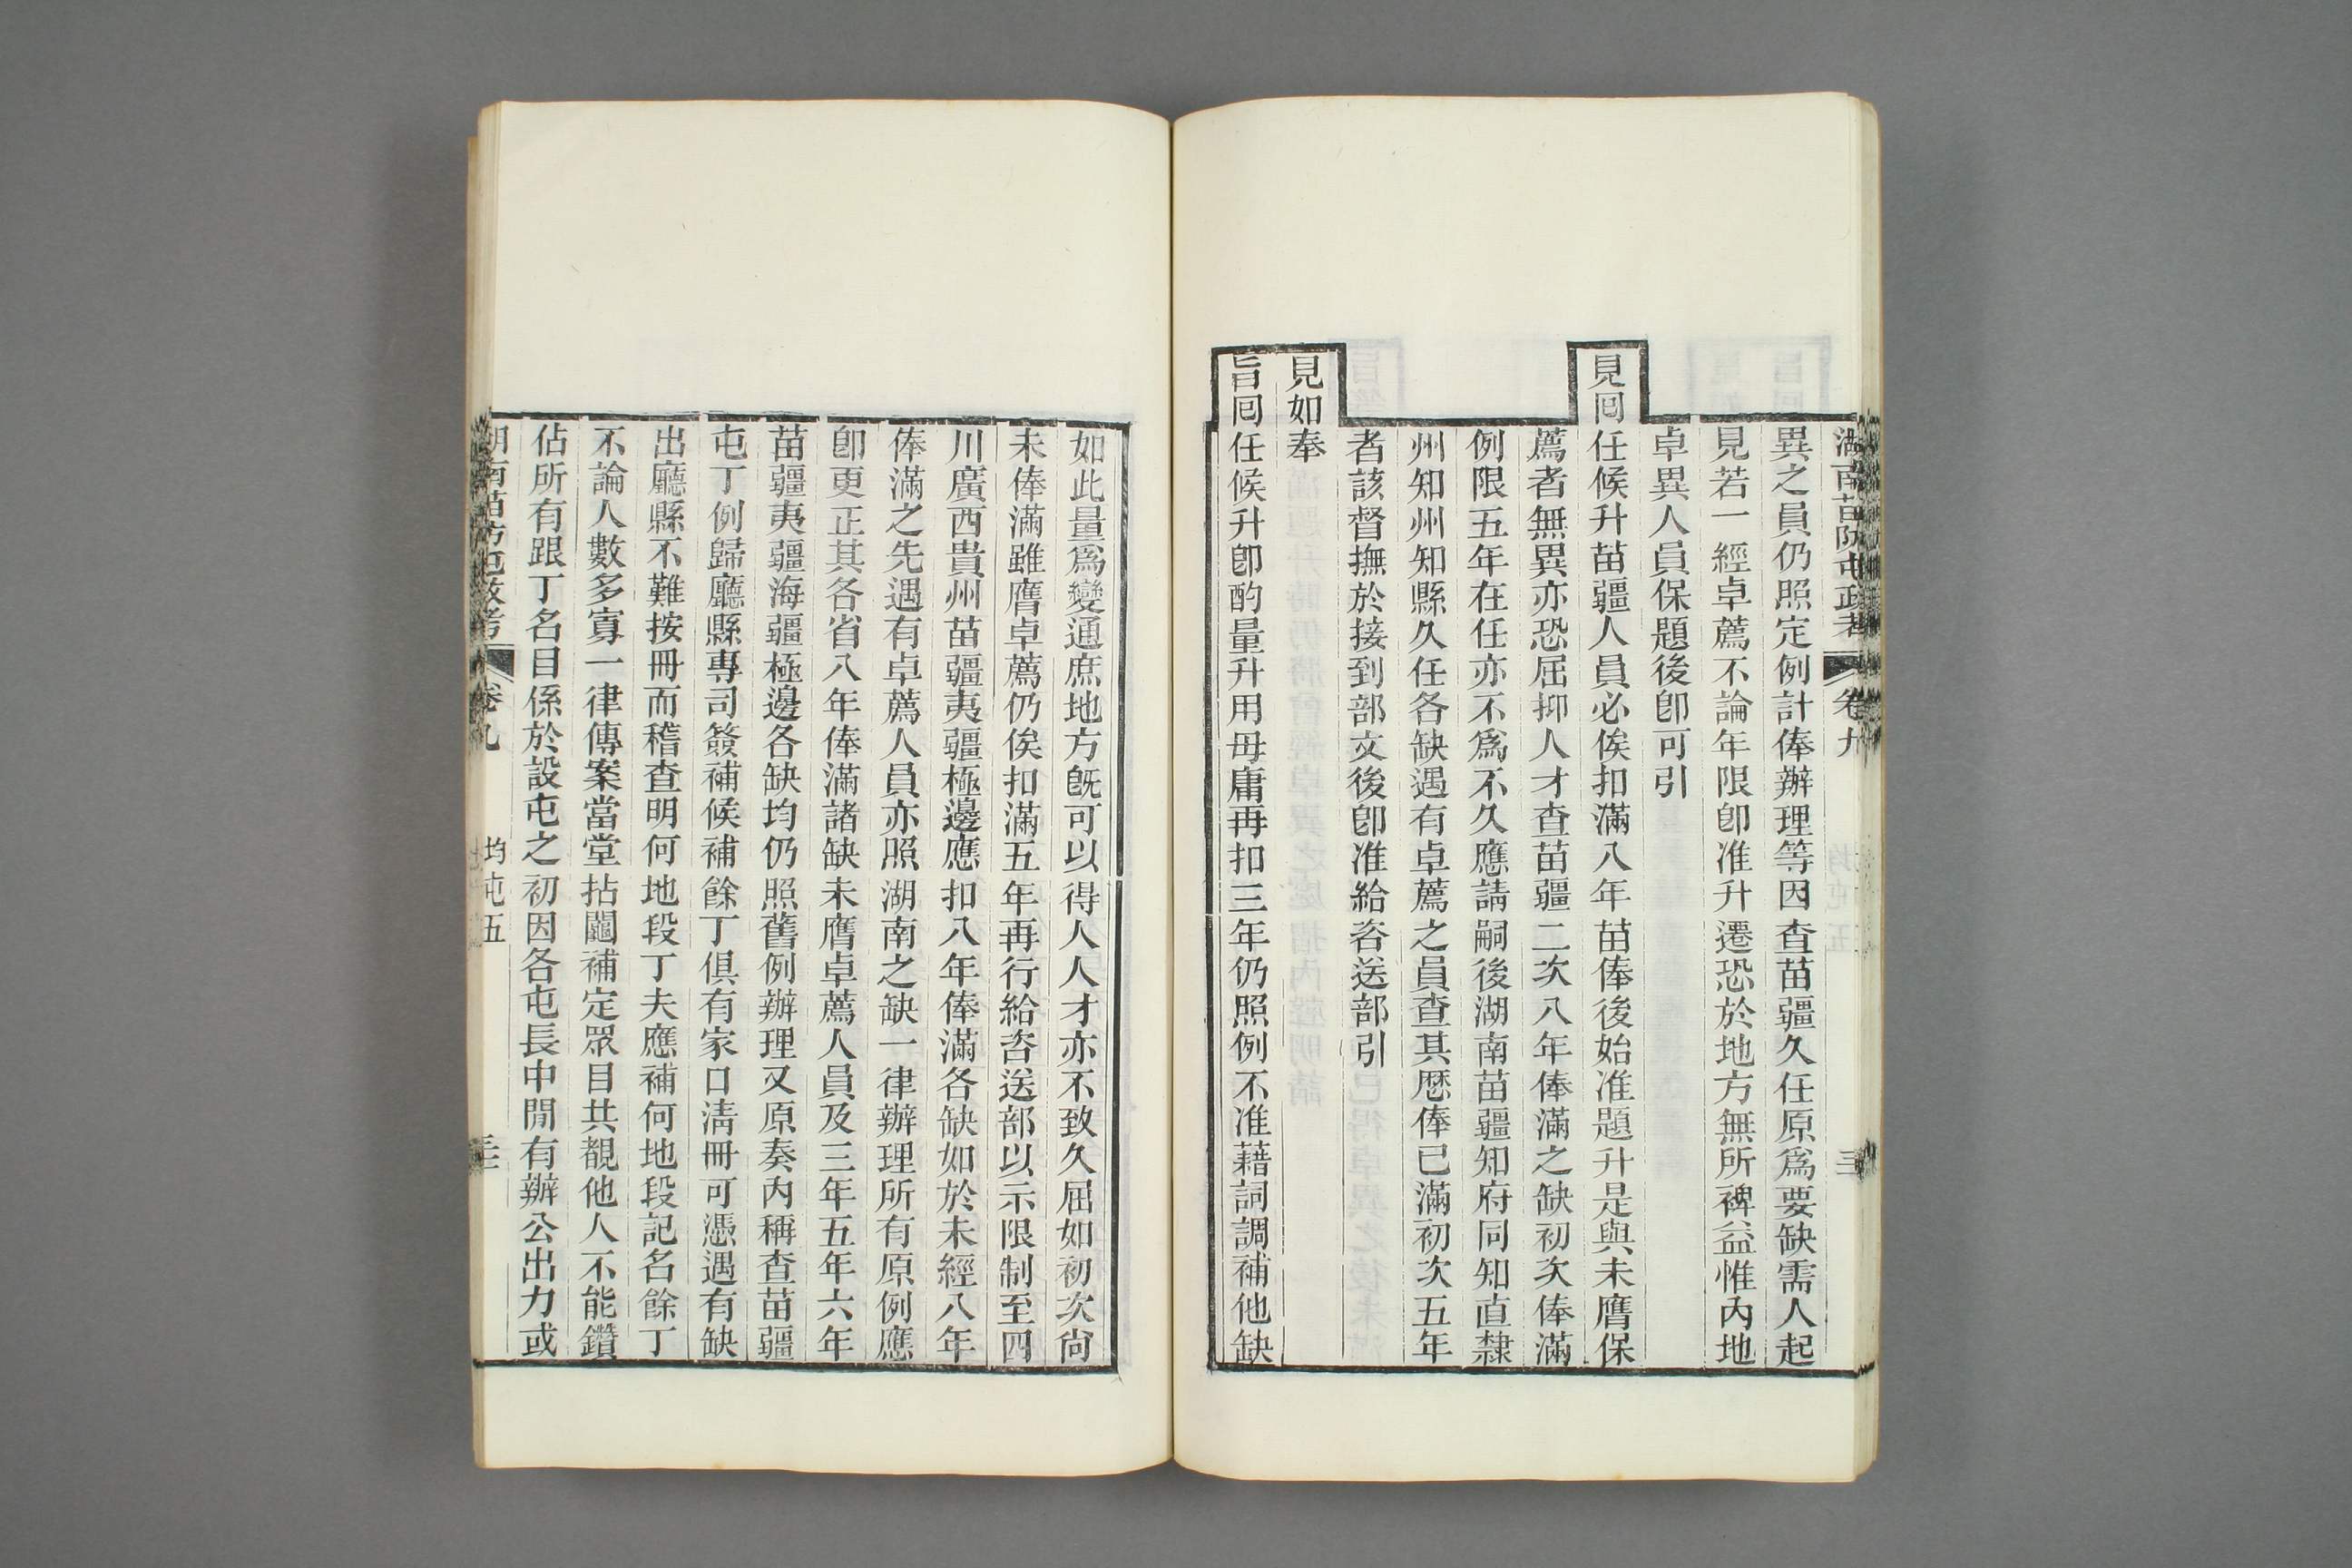 湖南苗防屯政考 卷九 三
異之員仍照定例計俸辦理等因查苗疆久任原爲要缺需人起
見若一經卓薦不論年限卽准升遷恐於地方無所裨益惟內地
卓異人員保題後卽可引
見回任候升苗疆人員必俟扣滿八年苗俸後始准題升是與未膺保
薦者無異亦恐屈抑人才查苗疆二次八年俸滿之缺初次俸滿
例限五年在任亦不爲不久應請嗣後湖南苗疆知府同知直隸
州知州知縣久任各缺遇有卓薦之員查其歷俸已滿初次五年
者該督撫於接到部文後卽准給咨送部引
見如奉
旨回任候升卽酌量升用毋庸再扣三年仍照例不准藉詞調補他缺
如此量爲變通庶地方旣可以得人人才亦不致久屈如初次尙
未俸滿雖膺卓薦仍俟扣滿五年再行給咨送部以示限制至四
川廣西貴州苗疆夷疆極邊應扣八年俸滿各缺如於未經八年
俸滿之先遇有卓薦人員亦照湖南之缺一律辦理所有原例應
卽更正其各省八年俸滿諸缺未膺卓薦人員及三年五年六年
苗疆夷疆海疆極邊各缺均仍照舊例辦理又原奏內稱查苗疆
屯丁例歸廳縣專司簽補候補餘丁俱有家口淸冊可憑遇有缺
出廳縣不難按冊而稽查明何地段丁夫應補何地段記名餘丁
不論人數多寡一律傳案當堂拈鬮補定眾目共覩他人不能鑽
佔所有跟丁名目係於設屯之初因各屯長中閒有辦公出力或
湖南苗防屯政考 卷九 均屯五